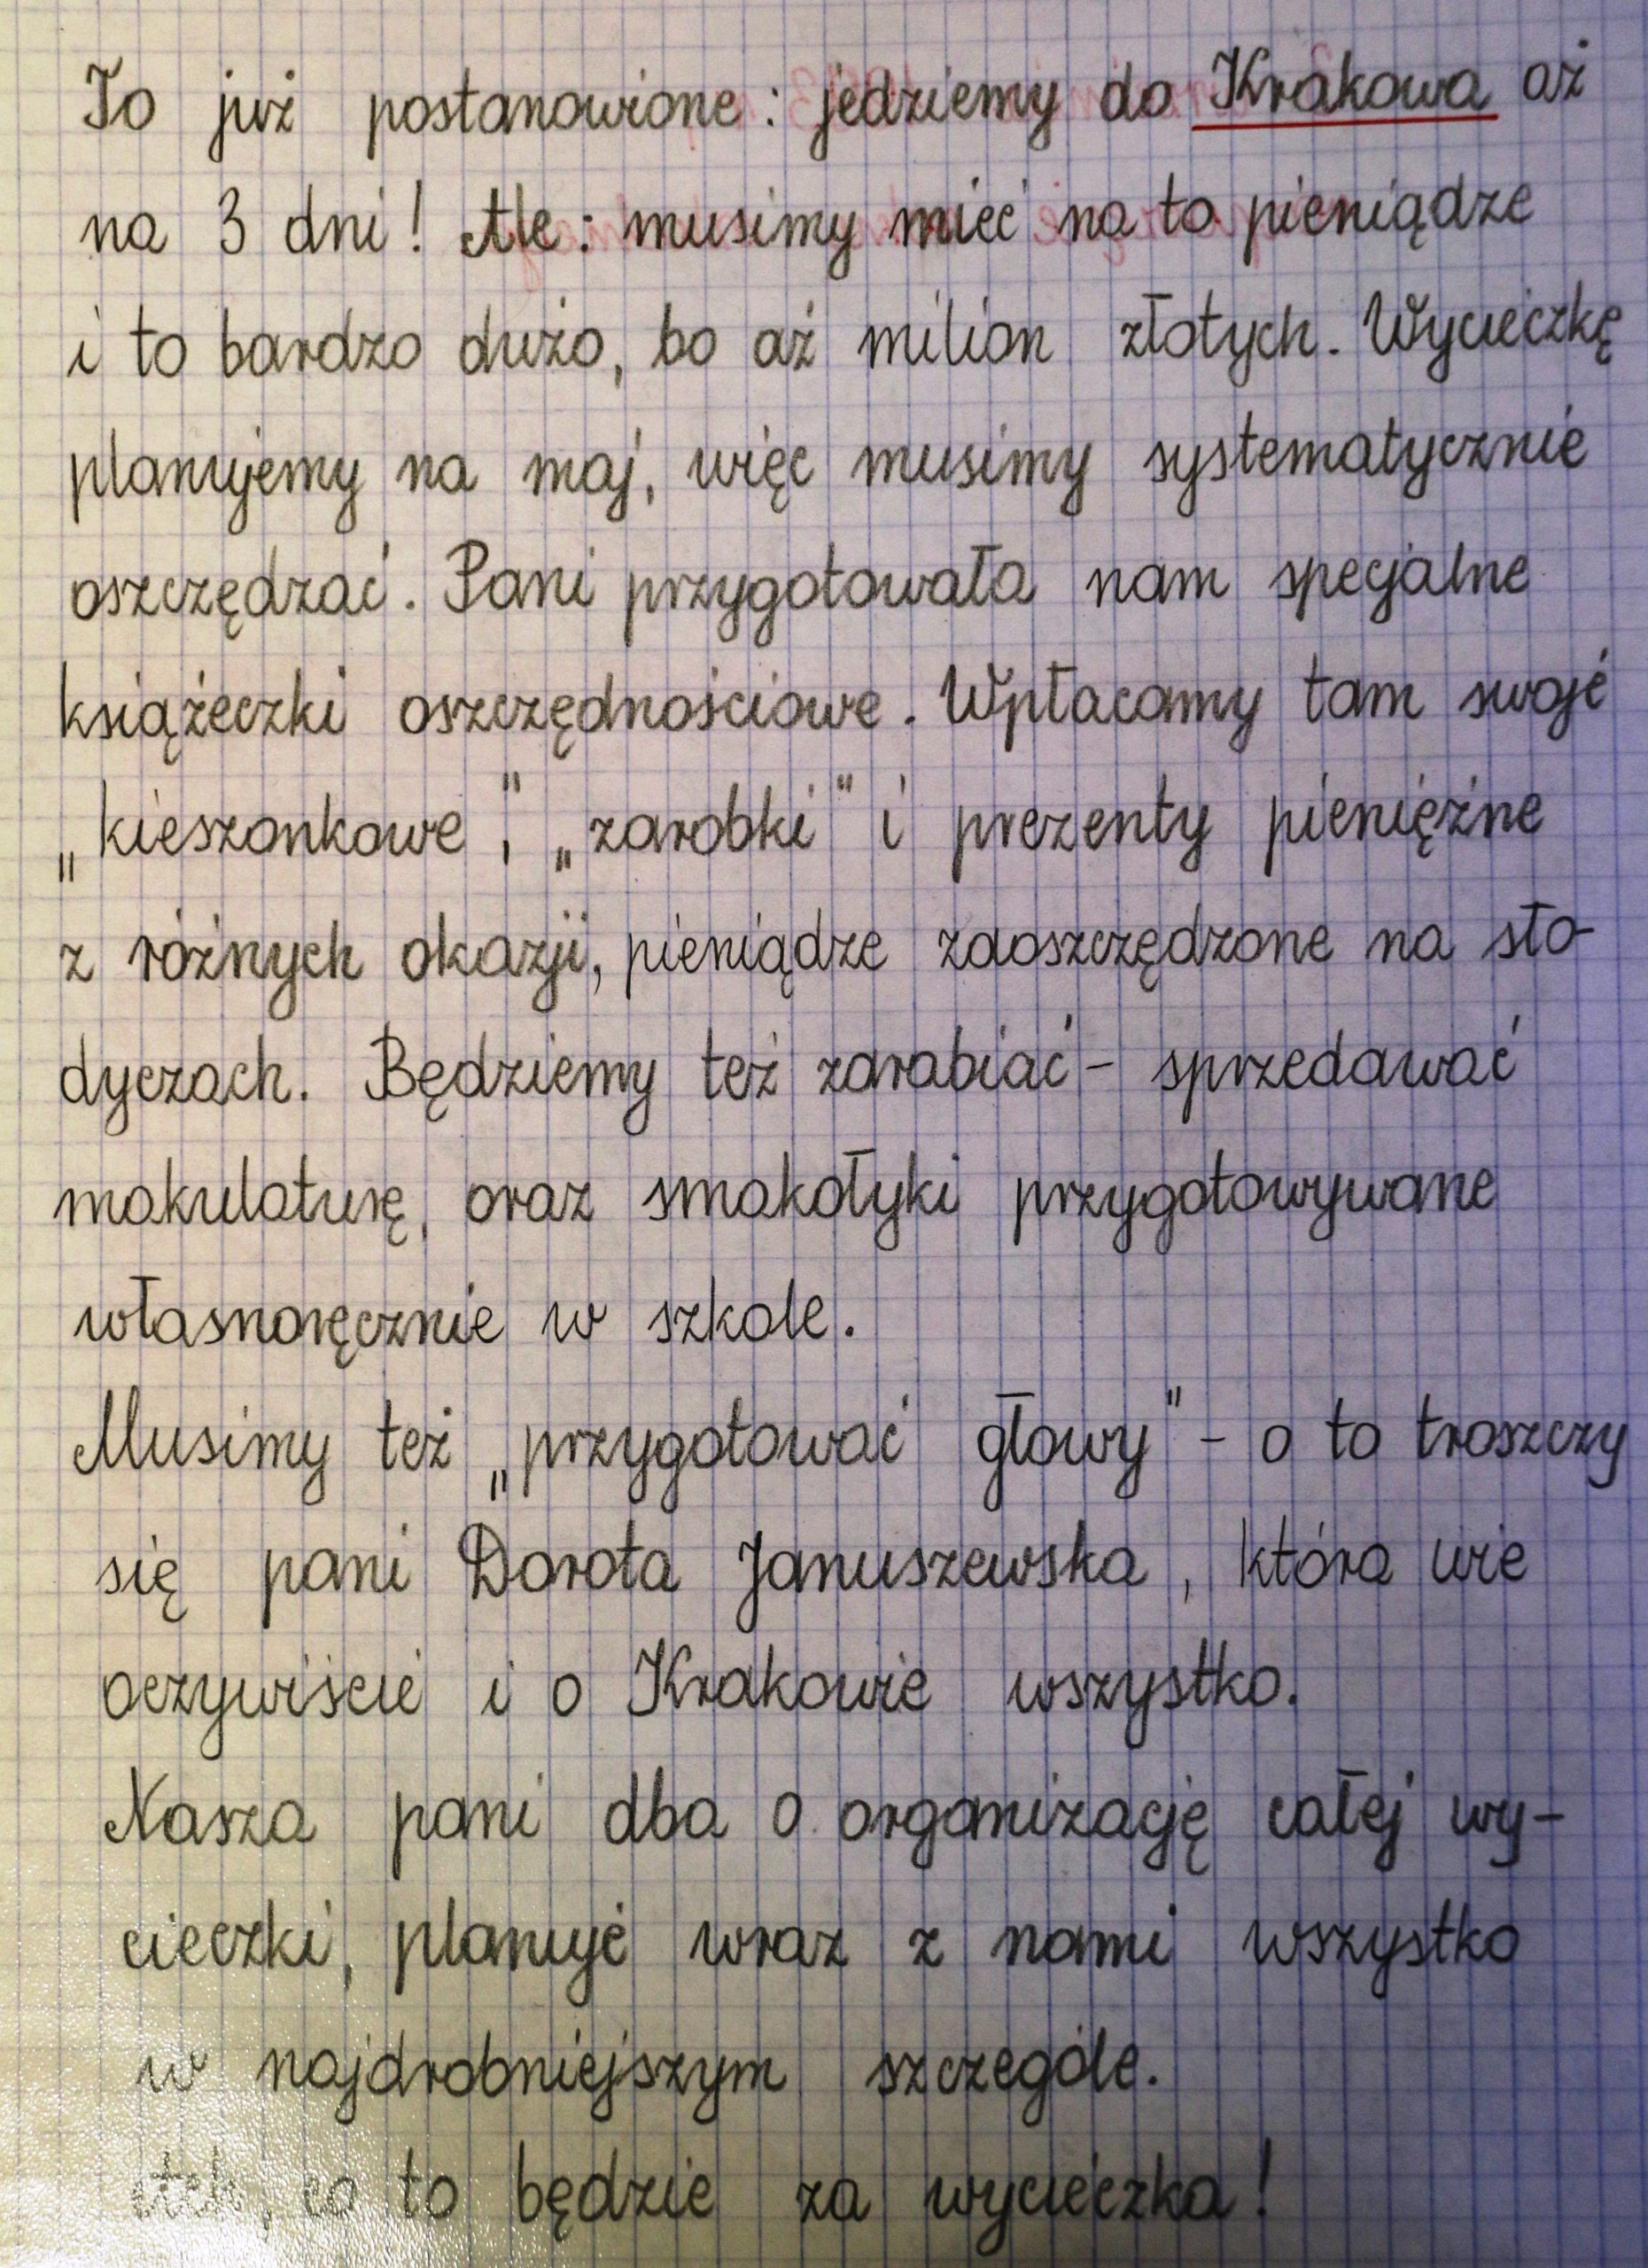 To już postanowione: jedziemy do Krakowa aż
na 3 dni! Ale: musimy mieć na to pieniądze
i to bardzo dużo, bo aż milion złotych. Wycieczkę
planujemy na maj, więc musimy systematycznie
oszczędzać. Pani przygotowała nam specjalne
książeczki oszczędnościowe. Wpłacamy tam swoje
„kieszonkowe", „zarobki" i prezenty pieniężne
z różnych okazji, pieniądze zaoszczędzone na sło-
dyczach. Będziemy też zarabiać - sprzedawać
makulaturę, oraz smakołyki przygotowywane
własnoręcznie w szkole.
Musimy też „przygotować głowy" - o to troszczy
się pani Dorota Januszewska, która wie
oczywiście i o Krakowie wszystko.
Nasza pani dba o organizację całej wy-
cieczki, planuje wraz z nami wszystko
w najdrobniejszym szczególe.
Ach, co to będzie za wycieczka!